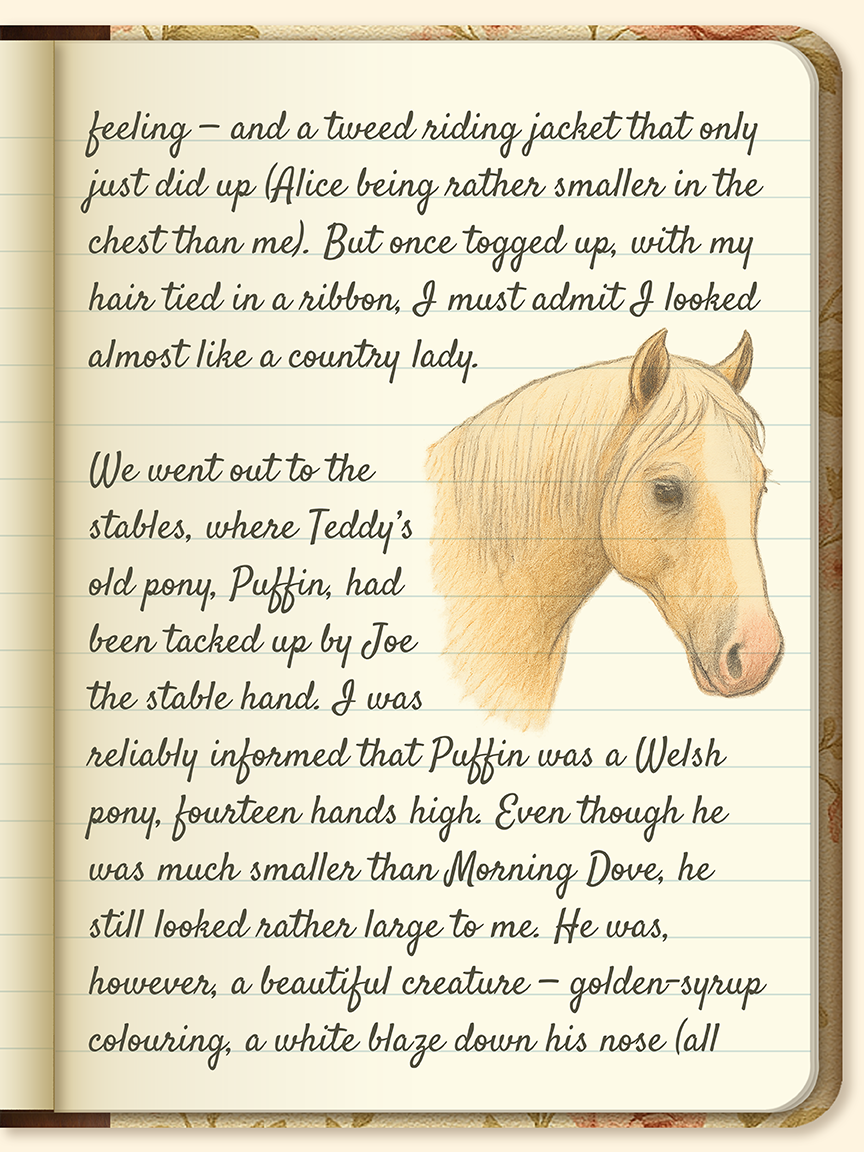 feeling – and a tweed riding jacket that only
just did up (Alice being rather smaller in the
chest than me). But once togged up, with my
hair tied in a ribbon, I must admit I looked
almost like a country lady.
We went out to the
stables, where Teddy’s
old pony, Puffin, had
been tacked up by Joe
the stable hand. I was
reliably informed that Puffin was a Welsh
pony, fourteen hands high. Even though he
was much smaller than Morning Dove, he
still looked rather large to me. He was,
however, a beautiful creature – golden-syrup
colouring, a white blaze down his nose (all